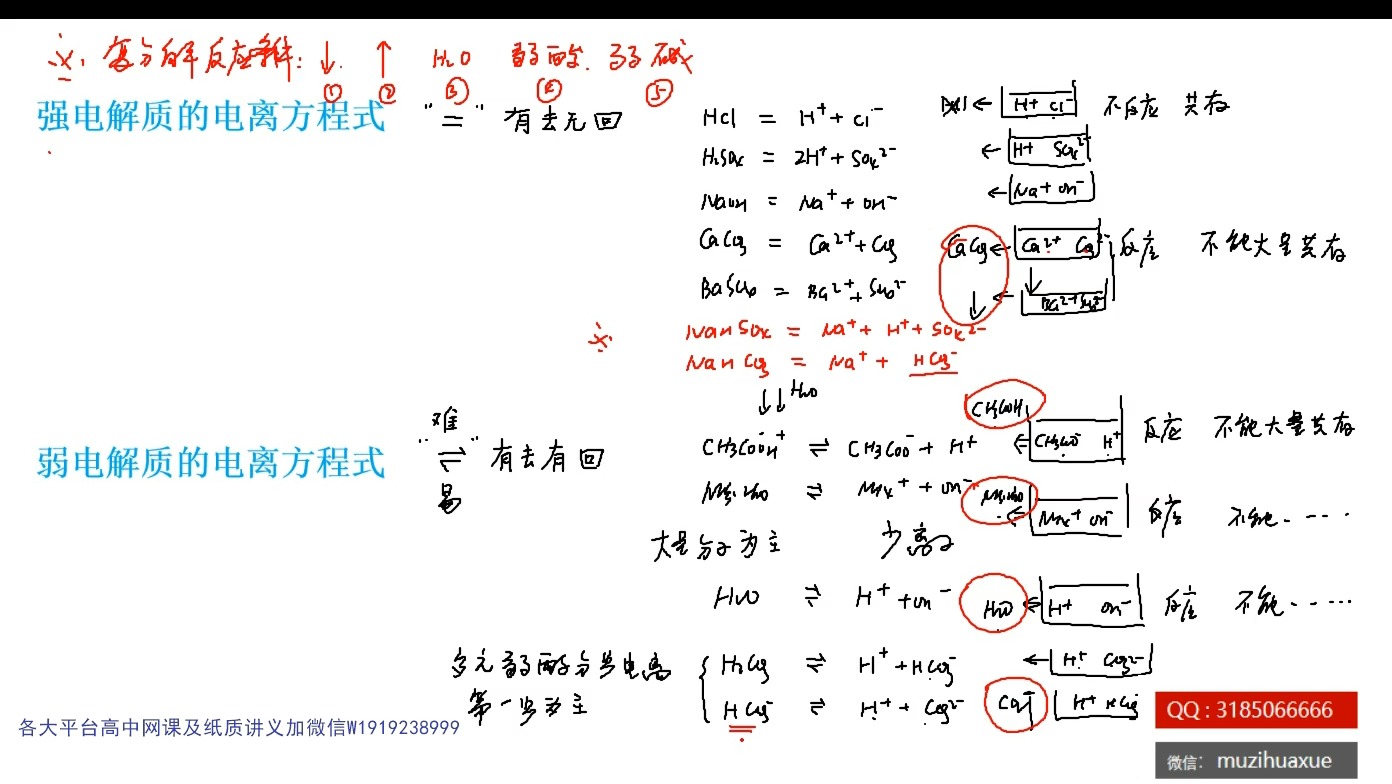 ※. 复分解反应条件: ↓ ↑ H₂O 弱酸. 弱碱
① ② ③ ④ ⑤
强电解质的电离方程式 "=" 有去无回
HCl = H⁺ + Cl⁻ ← H⁺ Cl⁻ 不反应 共存
H₂SO₄ = 2H⁺ + SO₄²⁻ ← H⁺ SO₄²⁻
NaOH = Na⁺ + OH⁻ ← Na⁺ OH⁻
CaCO₃ = Ca²⁺ + CO₃ CaCO₃ ← Ca²⁺ CO₃²⁻ 反应 不能大量共存
BaSO₄ = Ba²⁺ + SO₄²⁻ ↓ ← Ba²⁺ SO₄²⁻
※. NaHSO₄ = Na⁺ + H⁺ + SO₄²⁻
NaHCO₃ = Na⁺ + HCO₃⁻
↓↓ H₂O
弱电解质的电离方程式 "难 ⇌ 易" 有去有回
CH₃COOH ⇌ CH₃COO⁻ + H⁺ CH₃COOH ← CH₃COO⁻ H⁺ 反应 不能大量共存
NH₃·H₂O ⇌ NH₄⁺ + OH⁻ NH₃·H₂O ← NH₄⁺ OH⁻ 反应 不能.....
大量分子为主 少离子
H₂O ⇌ H⁺ + OH⁻ H₂O ← H⁺ OH⁻ 反应 不能.....
多元弱酸分步电离 H₂CO₃ ⇌ H⁺ + HCO₃⁻ ← H⁺ CO₃²⁻
第一步为主 HCO₃⁻ ⇌ H⁺ + CO₃²⁻ H⁺ HCO₃⁻
各大平台高中网课及纸质讲义加微信W1919238999
QQ : 3185066666
微信: muzihuaxue